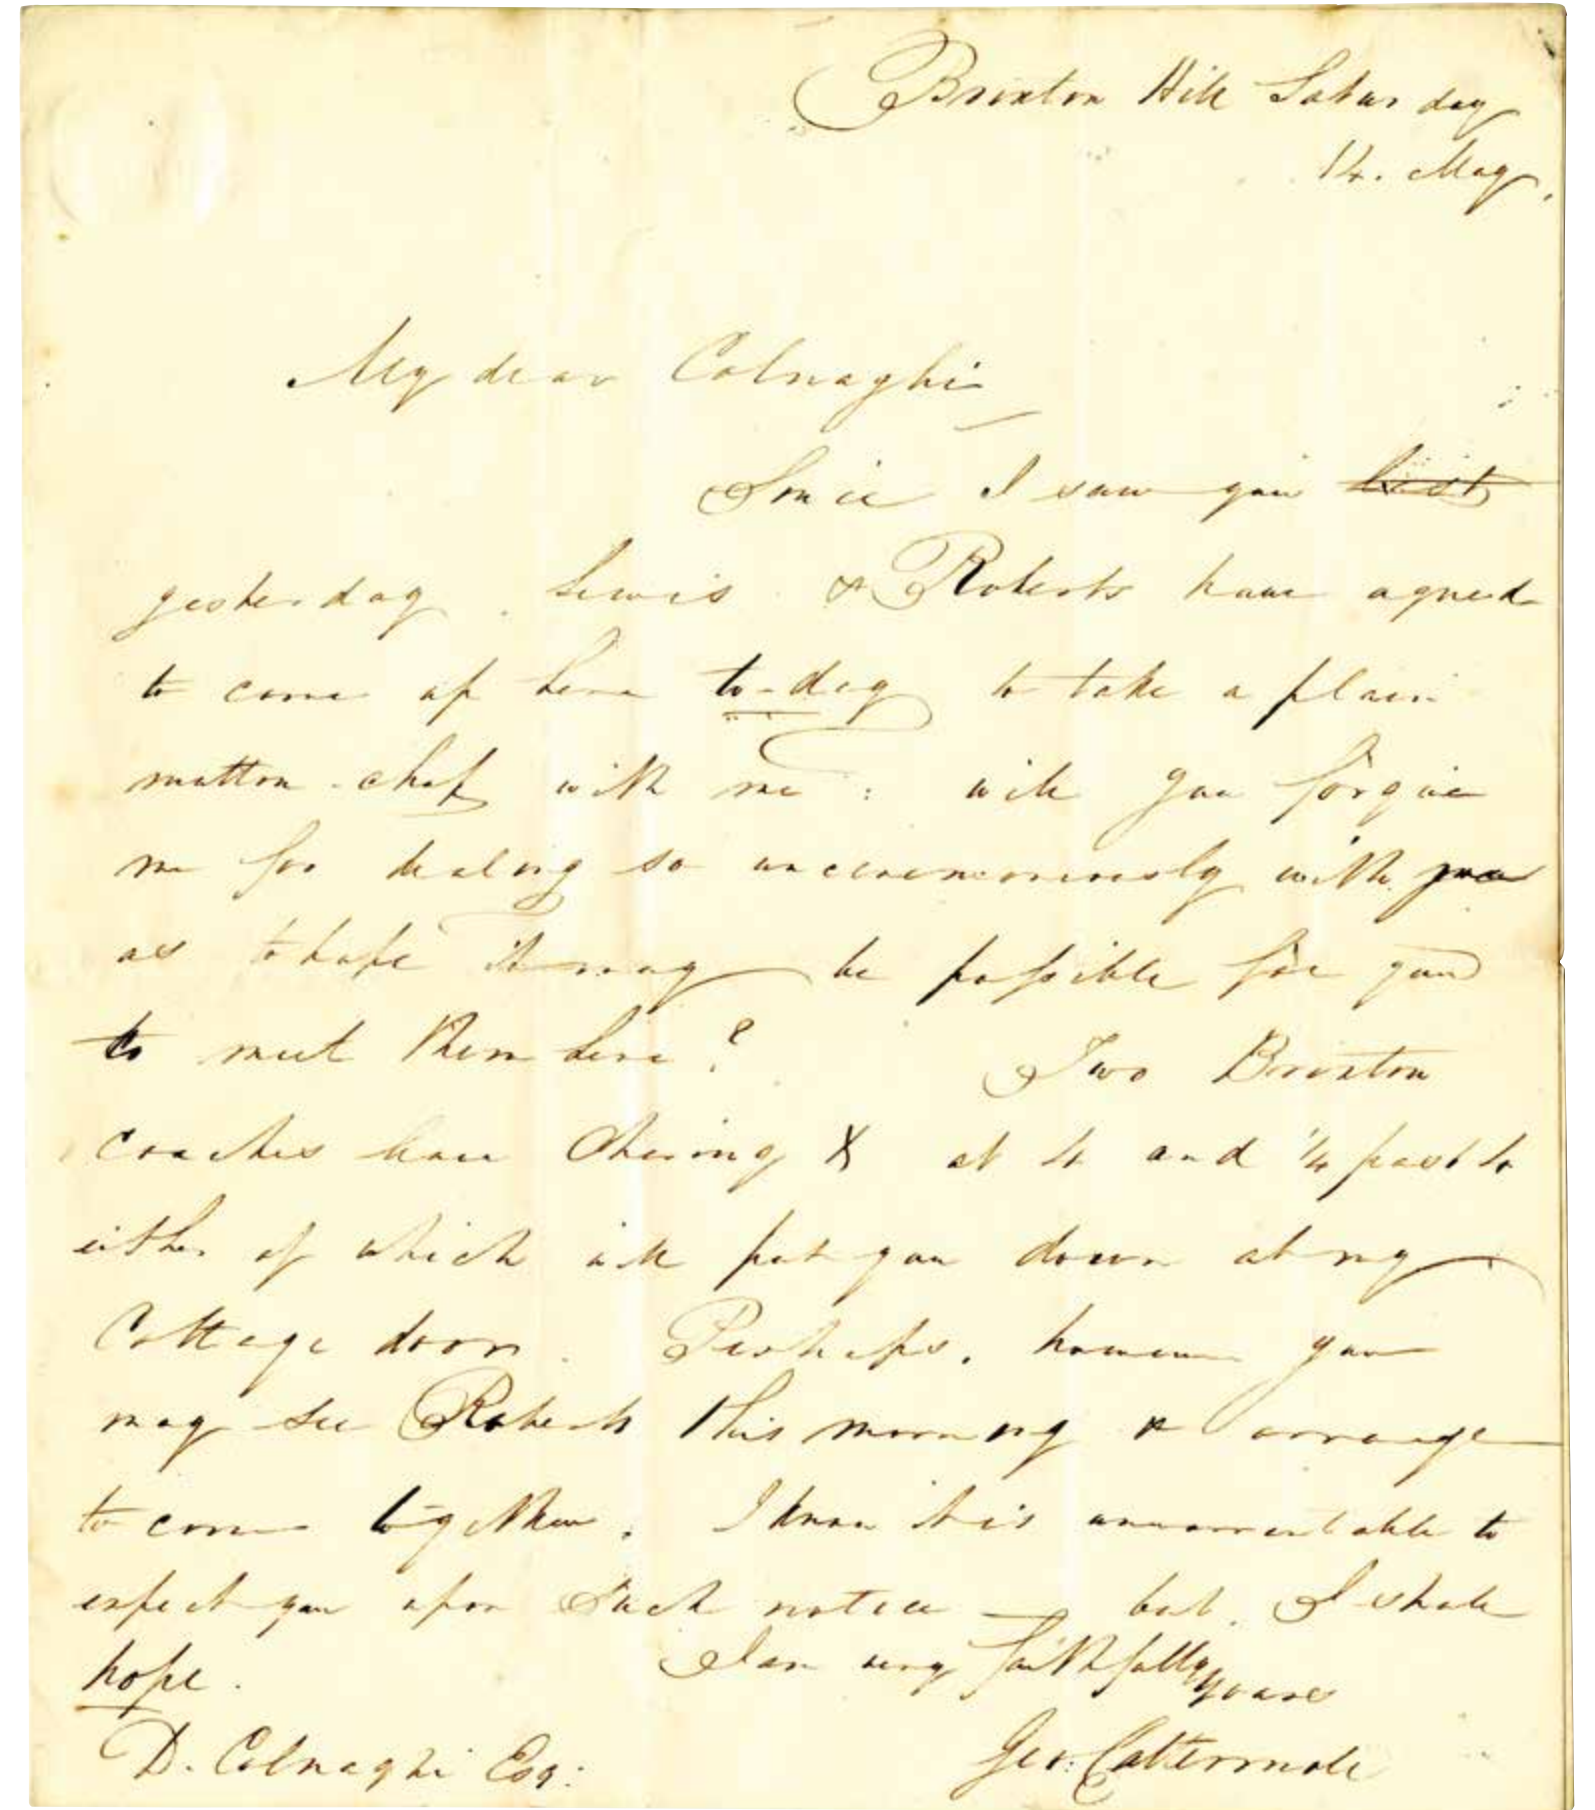 Brixton Hill Saturday
14. May.
My dear Colnaghi
Since I saw you last
yesterday. Lewis & Roberts have agreed
to come up here to-day to take a plain
mutton-chop with me: will you forgive
me for dealing so unceremoniously with you
as to hope it may be possible for you
to meet them here? Two Brixton
coaches leave Charing X at 4 and 1/4 past 4
either of which will put you down at my
Cottage door. Perhaps, however you
may see Roberts this morning & arrange
to come together. I know it is unwarrantable to
expect you upon such notice — but I shall
hope. I am very faithfully yours
D. Colnaghi Esq: Geo: Cattermole